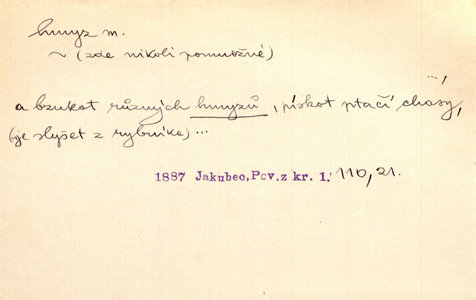 hmyz m.
~ (zde nikoli pomnožné)
...,
a bzukot různých hmyzů, pískot ptačí chasy,
(je slyšet z rybníka) ...
1887 Jakubec, Pov. z kr. 1. 110, 21.